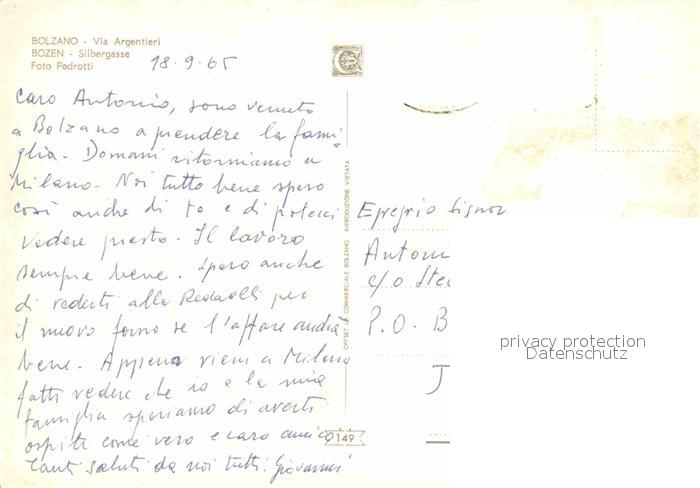 BOLZANO - Via Argentieri
BOZEN - Silbergasse
Foto Pedrotti
18.9.65
Caro Antonio, sono venuto
a Bolzano a prendere la fami-
glia. Domani ritorniamo a
Milano. Noi tutto bene spero
così anche di te e di poterci
vedere presto. Il lavoro
sempre bene. Spero anche
di vederti alla Redaelli per
il nuovo forno se l'affare andrà
bene. Appena vieni a Milano
fatti vedere che io e la mia
famiglia speriamo di averti
ospite come vero e caro amico.
Tanti saluti da noi tutti. Giovanni
OFFSET LA COMMERCIALE BOLZANO RIPRODUZIONE VIETATA
0149
Egregio Signor
Antoni
c/o Ste
P.O. B
J
privacy protection
Datenschutz